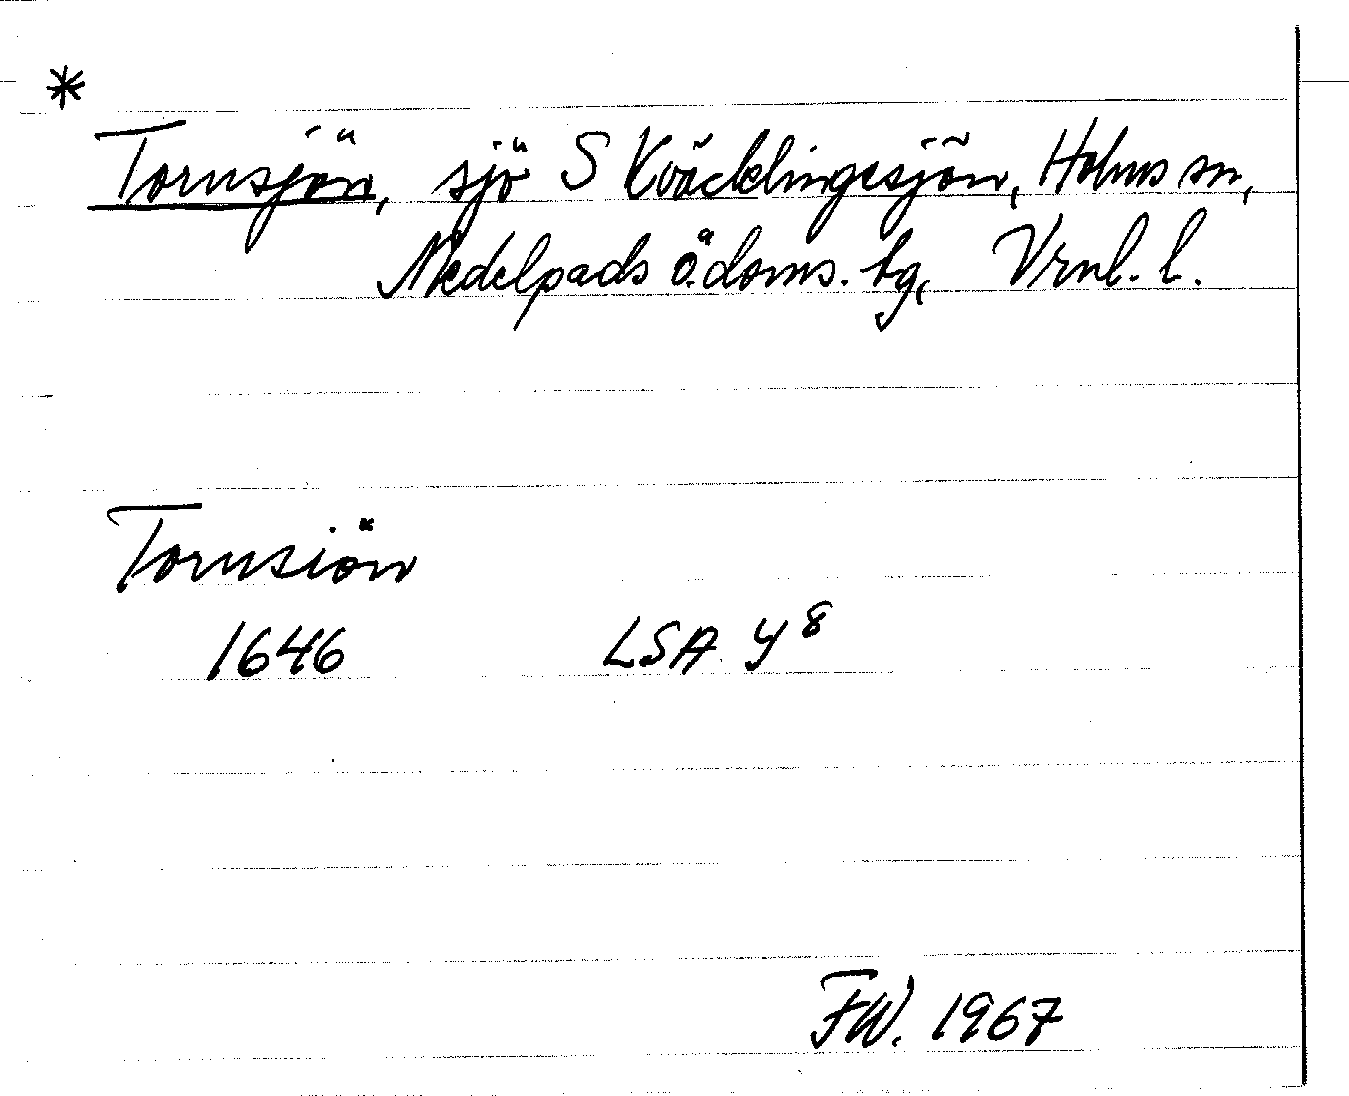 *
Tornsjön, sjö S Kväcklingesjön, Holms sn,
Medelpads ö. doms. tg, Vrnl. l.
Tornsiön
1646 LSA Y8
FW. 1967